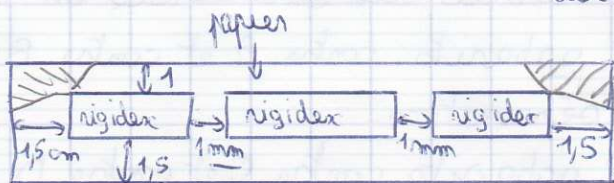 papier
1
rigidex rigidex rigidex
1,5 cm 1 mm 1 mm 1,5
1,5